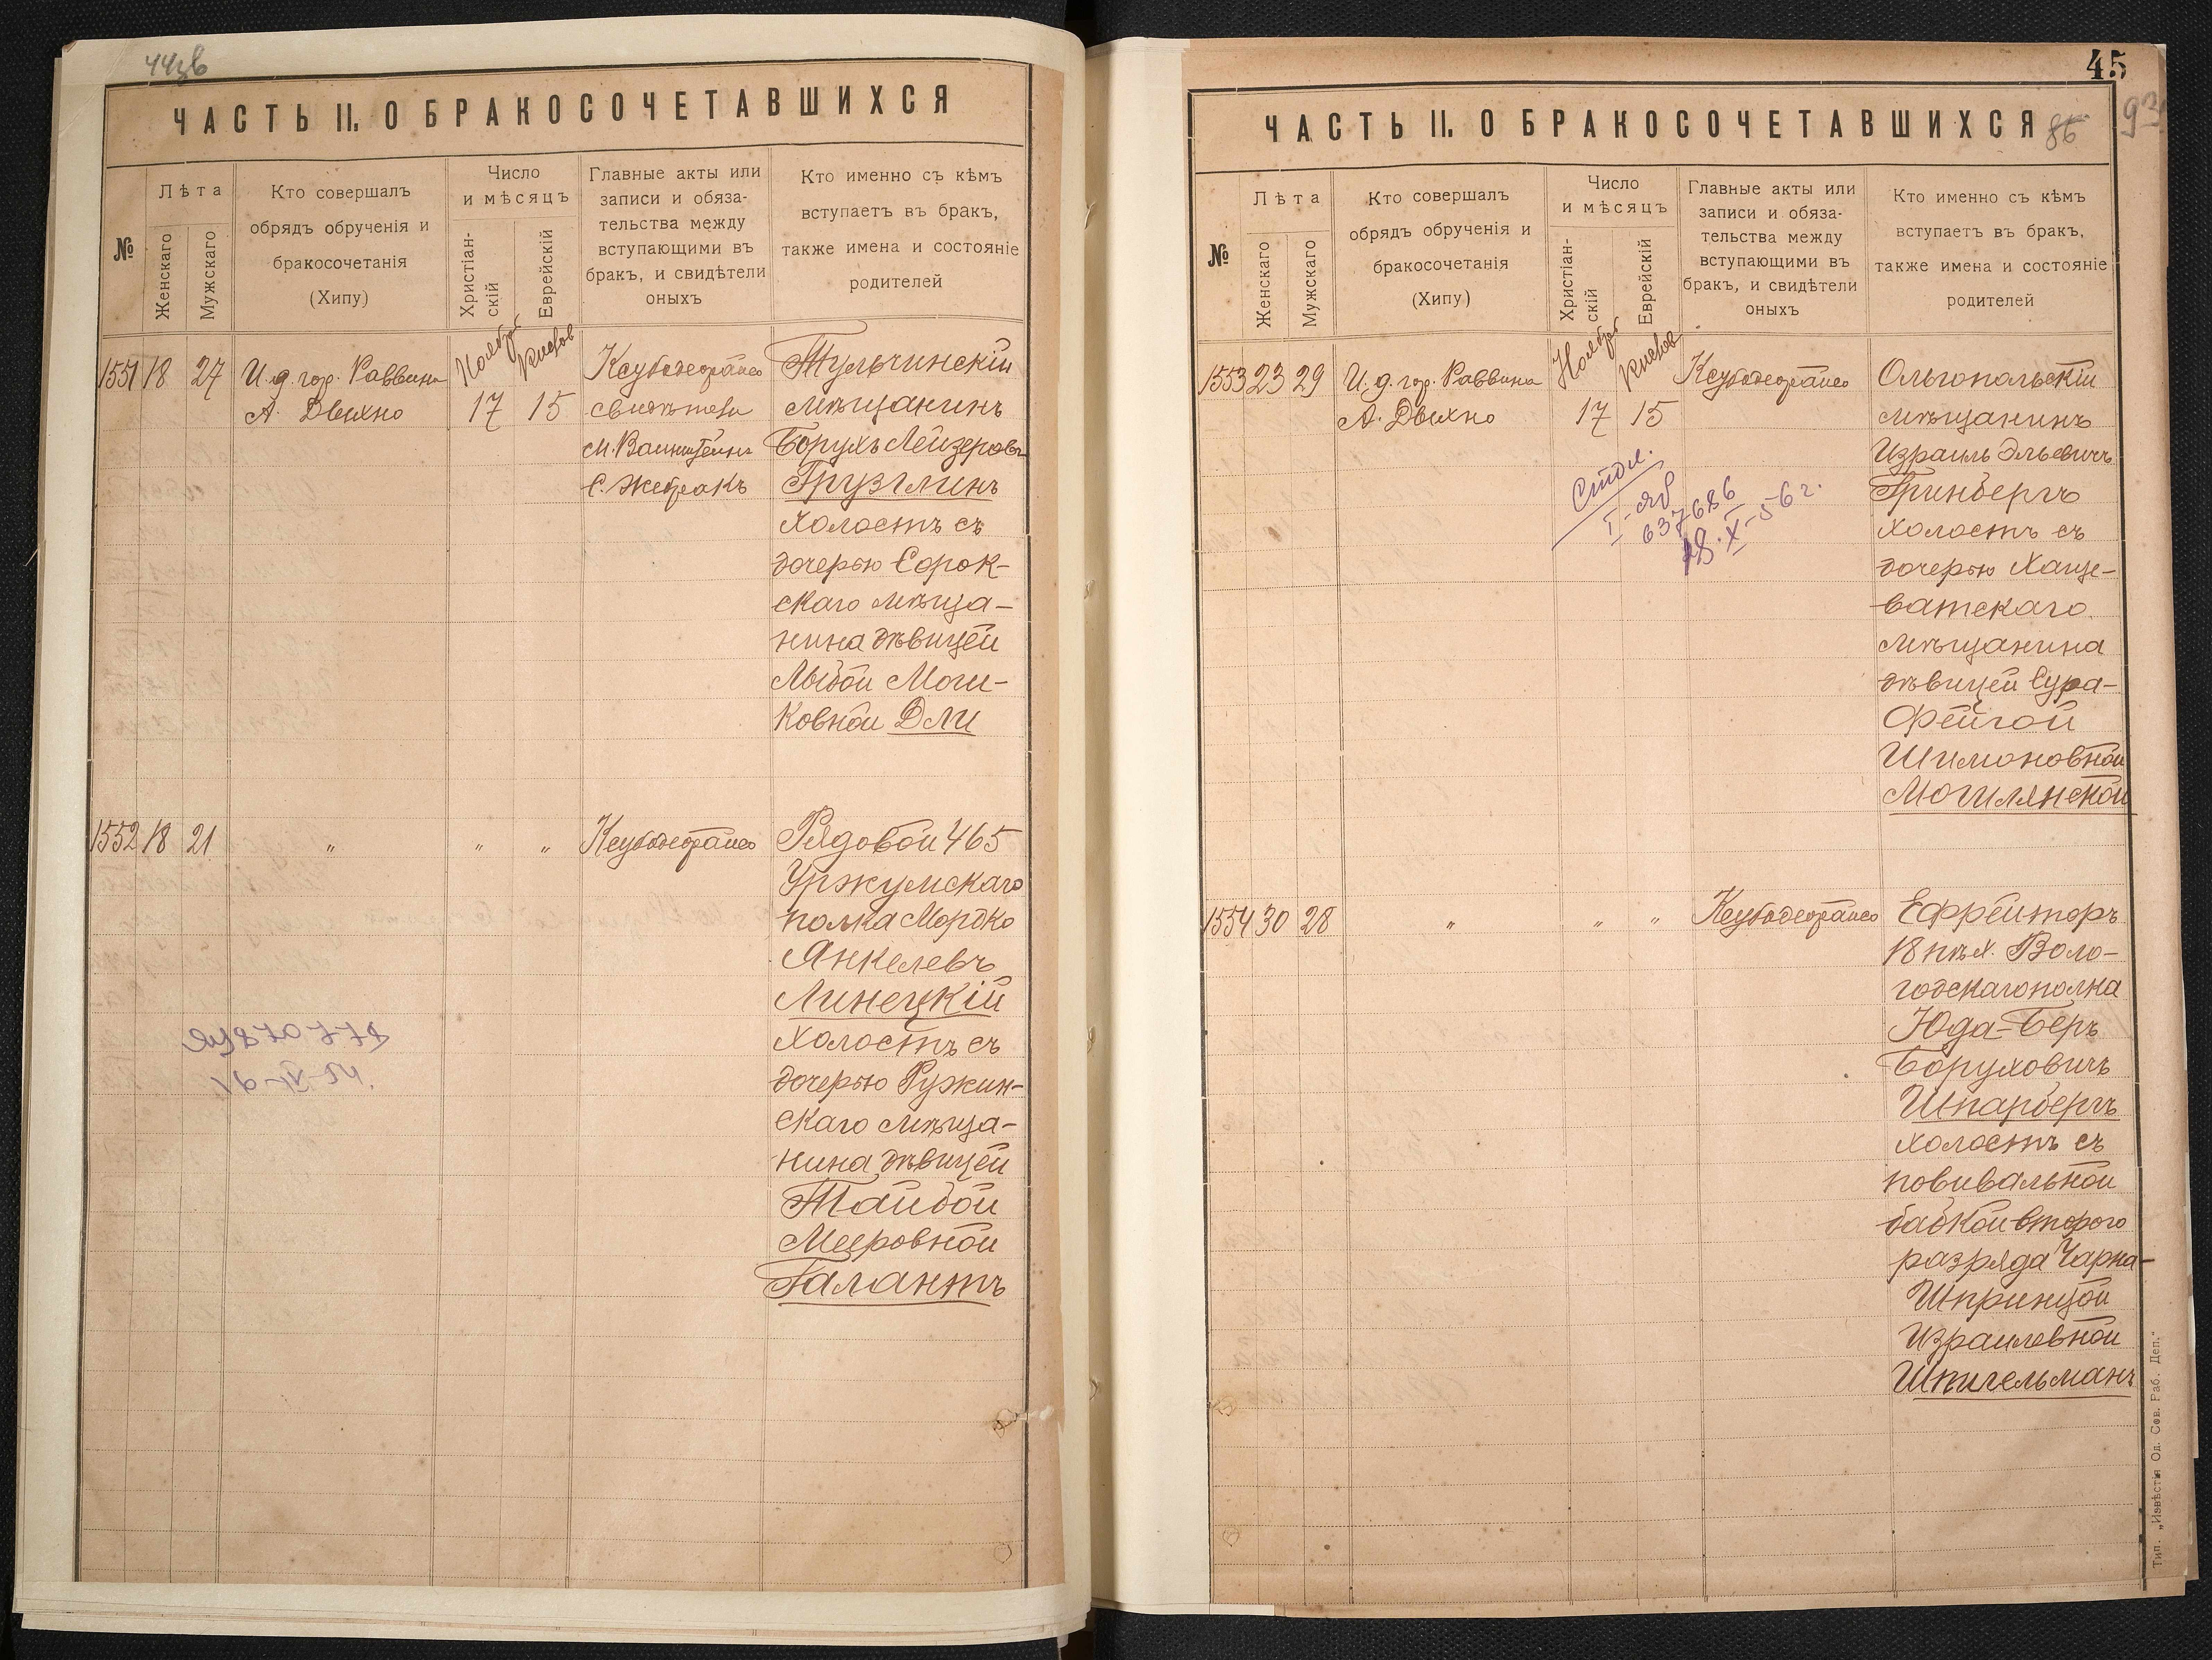 44зв
ЧАСТЬ II. О БРАКОСОЧЕТАВШИХСЯ
№
Лѣта
Женскаго
Мужскаго
Кто совершалъ
обрядъ обрученія и
бракосочетанія
(Хипу)
Число
и мѣсяцъ
Христіан-
скій
Еврейскій
Главные акты или
записи и обяза-
тельства между
вступающими въ
бракъ, и свидѣтели
оныхъ
Кто именно съ кѣмъ
вступаетъ въ бракъ,
также имена и состояніе
родителей
Ноября
Кислов
1551 18 27 И. д. гор. Раввина
А. Двихно
17 15
Ксубодеорайсо
свидѣтели
М. Вайнштейнъ
С. Жебракъ
Тульчинскій
мѣщанинъ
Борухъ Лейзеровъ
Грузглинъ
холостъ съ
дочерью Сорок-
скаго мѣща-
нина дѣвицей
Лыбой Мош-
ковной Дли
1552 18 21 " " " Ксубодеорайсо
Рядовой 465
Уржумскаго
полка Мордко
Янкелевъ
Линецкій
холостъ съ
дочерью Ружин-
скаго мѣща-
нина дѣвицей
Тайбой
Мееровной
Галантъ
45
93
86
ЧАСТЬ II. О БРАКОСОЧЕТАВШИХСЯ
№
Лѣта
Женскаго
Мужскаго
Кто совершалъ
обрядъ обрученія и
бракосочетанія
(Хипу)
Число
и мѣсяцъ
Христіан-
скій
Еврейскій
Главные акты или
записи и обяза-
тельства между
вступающими въ
бракъ, и свидѣтели
оныхъ
Кто именно съ кѣмъ
вступаетъ въ бракъ,
также имена и состояніе
родителей
Ноября
Кислов
1553 23 29 И. д. гор. Раввина
А. Двихно
17 15
Ксубодеорайсо
637686
18.X-56 г.
Ольгопольскій
мѣщанинъ
Израиль Эльевичъ
Гринбергъ
холостъ съ
дочерью Хаще-
ватскаго
мѣщанина
дѣвицей Сура-
Фейгой
Шимоновной
Могилянской
1554 30 28 " " " Ксубодеорайсо
Ефрейторъ
18 пѣх. Воло-
годскаго полка
Юда-Беръ
Боруховичъ
Шпарбергъ
холостъ съ
повивальной
бабкой второго
разряда Чарна-
Шпринцой
Израилевной
Шпигельманъ
Тип. „Извѣстія Од. Сов. Раб. Деп."